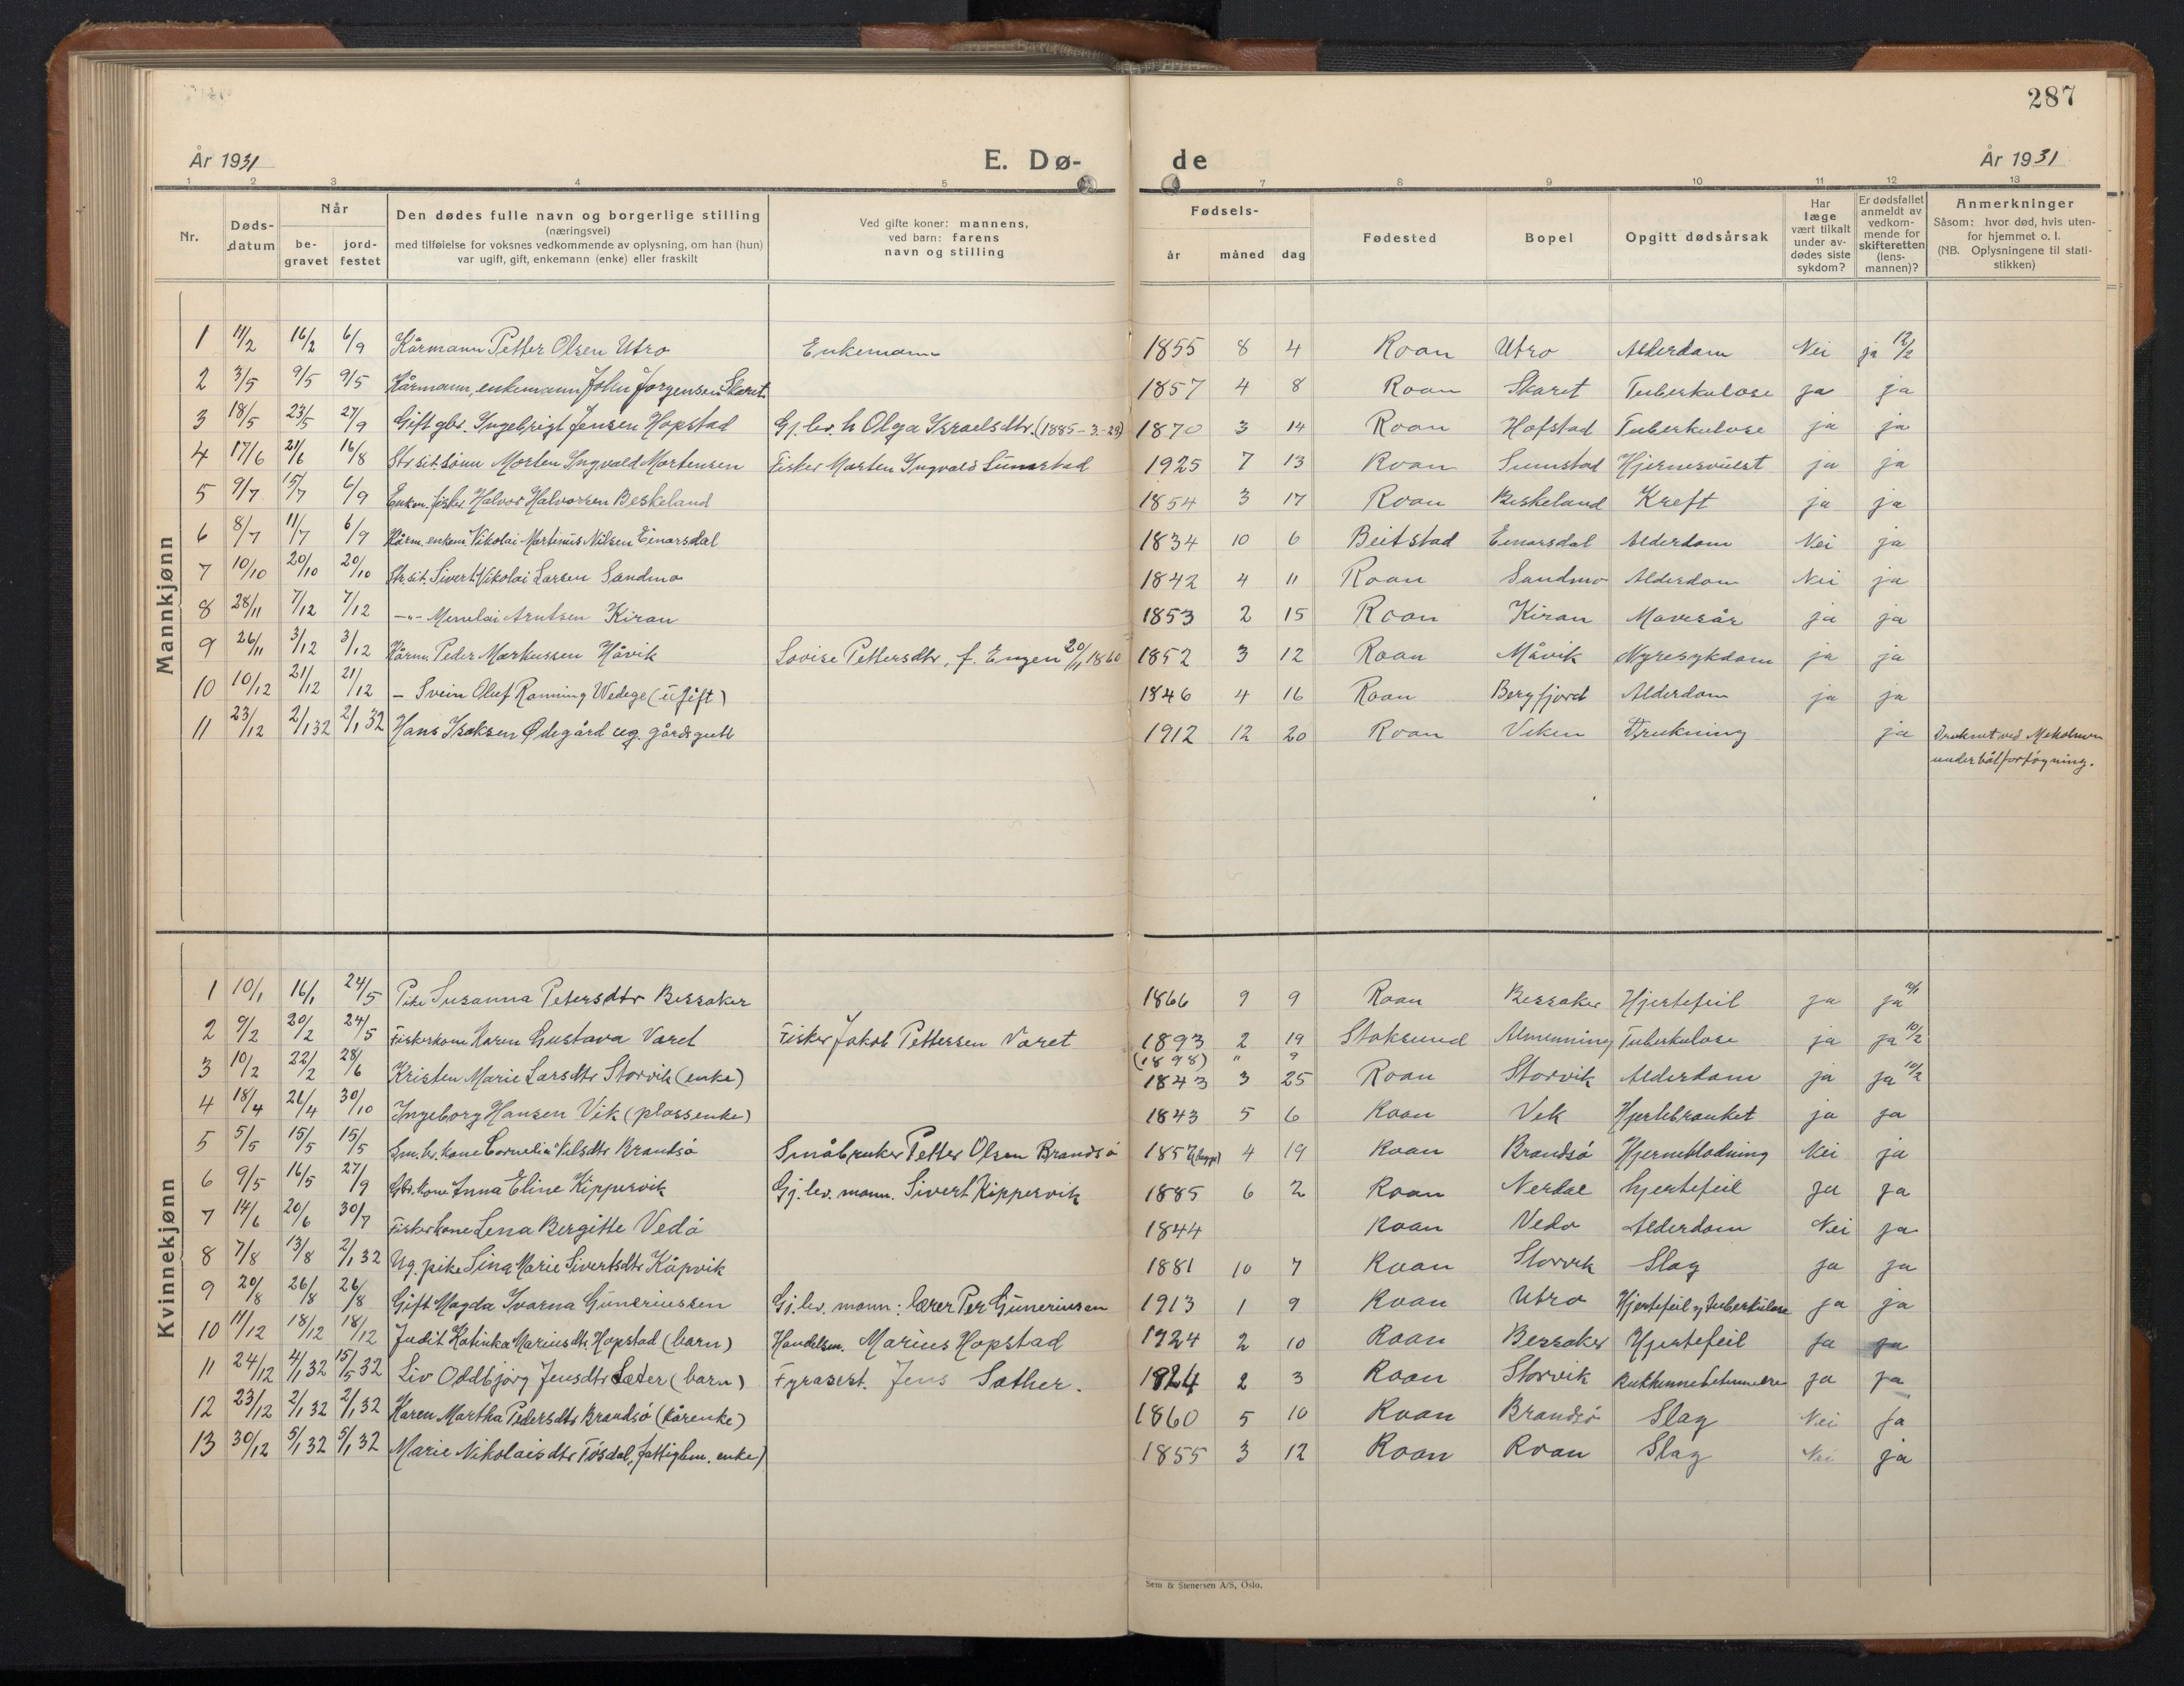 287
År 1931 E. Dø- de År 1931
1 2 3 4 5 7 8 9 10 11 12 13
Nr. | Døds-datum | Når be-gravet | jord-festet | Den dødes fulle navn og borgerlige stilling (næringsvei) med tilføielse for voksnes vedkommende av oplysning, om han (hun) var ugift, gift, enkemann (enke) eller fraskilt | Ved gifte koner: mannens, ved barn: farens navn og stilling | Fødsels- år | måned | dag | Fødested | Bopel | Opgitt dødsårsak | Har læge vært tilkalt under av-dødes siste sykdom? | Er dødsfallet anmeldt av vedkom-mende for skifteretten (lens-mannen)? | Anmerkninger Såsom: hvor død, hvis uten-for hjemmet o. l. (NB. Oplysningene til stati-stikken)
Mannkjønn
1 11/2 16/2 6/9 Kårmann Petter Olsen Utro Enkemann 1855 8 4 Roan Utro Alderdom Nei ja 12/2
2 3/5 9/5 9/5 Kårmann, enkemann John Jørgensen Skaret 1857 4 8 Roan Skaret Tuberkulose ja ja
3 18/5 23/5 27/9 Gift gbr. Ingebrigt Jensen Hopstad Gj. lev. h Olga Israelsdtr. (1885-3-23) 1870 3 14 Roan Hofstad Tuberkulose ja ja
4 17/6 21/6 16/8 Str.sit. sønn Morten Ingvald Mortensen Fisker Morten Ingvald Sumstad 1925 7 13 Roan Sumstad Hjernesvulst ja ja
5 9/7 15/7 6/9 Enkem. fisker Halvor Halvorsen Beskeland 1854 3 17 Roan Beskeland Kreft ja ja
6 8/7 11/7 6/9 Kårm. enkem. Nikolai Martinus Nilsen Einarsdal 1834 10 6 Beitstad Einarsdal Alderdom Nei ja
7 10/10 20/10 20/10 Str.sit. Sivert Nikolai Larsen Sandmo 1842 4 11 Roan Sandmo Alderdom Nei ja
8 28/11 7/12 7/12 —"— Menelai Arntsen Kiran 1853 2 15 Roan Kiran Mavesår ja ja
9 26/11 3/12 3/12 Kårm. Peder Markussen Håvik Lovise Pettersdtr, f. Engen 20/11 1860 1852 3 12 Roan Måvik Nyresykdom ja ja
10 10/12 21/12 21/12 — Svein Oluf Rønning Wedege (ugift) 1846 4 16 Roan Bergfjord Alderdom ja ja
11 23/12 2/1 32 2/1 32 Hans Isaksen Ødegård ug. gårdsgutt 1912 12 20 Roan Viken Drukning ja Druknet ved
under båtforføyning.
Kvinnekjønn
1 10/1 16/1 24/5 Pike Susanna Petersdtr Bessaker 1866 9 9 Roan Bessaker Hjertefeil ja ja
2 9/2 20/2 24/5 Fiskerkone Karen Gustava Varet Fisker Jakob Pettersen Varet 1893 2 19 Stoksund Almenning Tuberkulose ja ja 10/2
(1898) " 9
3 10/2 22/2 28/6 Kristen Marie Larsdtr Storvik (enke) 1843 3 25 Roan Storvik Alderdom ja ja 10/2
4 18/4 26/4 30/10 Ingeborg Hansen Vik (plassenke) 1843 5 6 Roan Vik Hjertebranket ja ja
5 5/5 15/5 15/5 Sm.br. kone Cornelia Nilsdtr Brandsø Småbruker Petter Olsen Brandsø 1857 4 19 Roan Brandsø Hjerneblødning Nei ja
6 9/5 16/5 27/9 Gbr. kone Anna Eline Kippervik Gj. lev. mann. Sivert Kippervik 1885 6 2 Roan Nerdal Hjertefeil ja ja
7 14/6 20/6 30/7 Fiskerkone Lena Bergitte Vedø 1844 Roan Vedø Alderdom Nei ja
8 7/8 13/8 2/1 32 Ug. pike Sina Marie Sivertsdtr Kåpvik 1881 10 7 Roan Storvik Slag ja ja
9 20/8 26/8 26/8 Gift Magda Ivarna Gunerinssen Gj. lev. mann: lærer Per Gunerinsen 1913 1 9 Roan Utro Hjertefeil og tuberkulose ja ja
10 11/12 18/12 18/12 Judit Katinka Mariusdtr. Hopstad (barn) Handelsm. Marius Hopstad 1924 2 10 Roan Bessaker Hjertefeil ja ja
11 24/12 4/1 32 15/5 32 Liv Oddbjørg Jensdtr Sæter (barn) Fyrassist. Jens Sæther. 1924 2 3 Roan Storvik Bukhinnebetennelse ja ja
12 23/12 2/1 32 2/1 32 Karen Martha Pedersdtr Brandsø (kårenke) 1860 5 10 Roan Brandsø Slag Nei ja
13 30/12 5/1 32 5/1 32 Marie Nikolaisdtr Tøsdal, fattiglem. enke) 1855 3 12 Roan Roan Slag Nei ja
Sem & Stenersen A/S, Oslo.